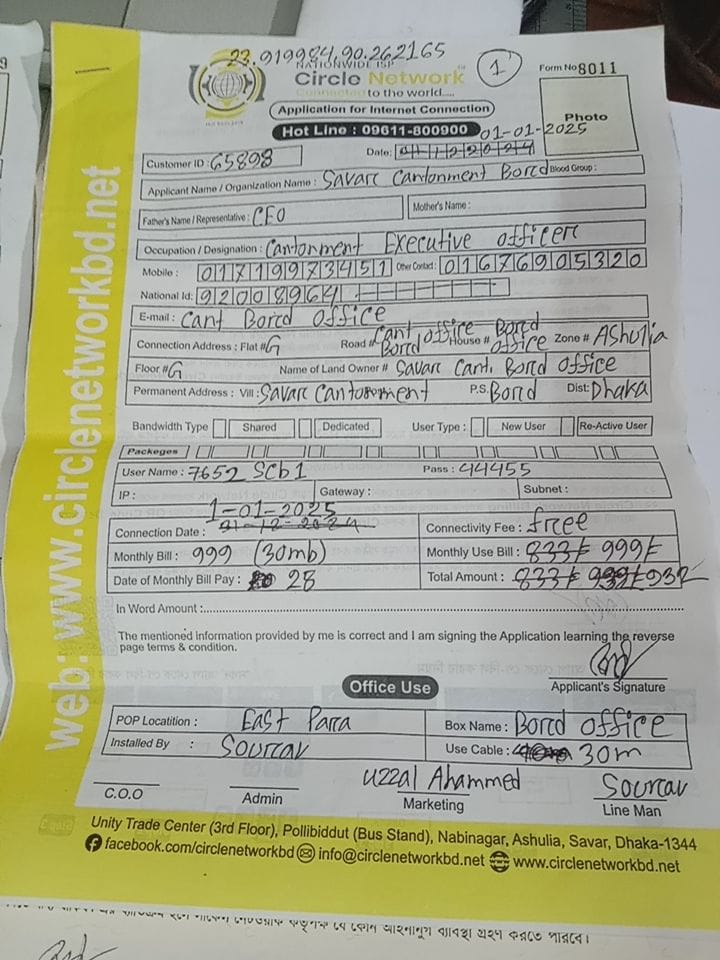 23.919984,90.262165
NATIONWIDE ISP
Circle Network
Connected to the world.....
1
Form No 8011
Application for Internet Connection
Photo
Hot Line : 09611-800900
01-01-2025
Date:
Customer ID : 65898
Applicant Name / Organization Name : Savar Cantonment Bord Blood Group :
Father's Name / Representative : CEO Mother's Name :
Occupation / Designation : Cantonment Executive officer
Mobile : 01719973451 Other Contact : 01676905320
National Id: 92008964
E-mail : Cant Bord office
Connection Address : Flat # G Road # Cant Bord office House # Bord office Zone # Ashulia
Floor # G Name of Land Owner # Savar Cant. Bord office
Permanent Address : Vill : Savar Cantonment P.S. Bord Dist: Dhaka
Bandwidth Type Shared Dedicated User Type : New User Re-Active User
Packeges
User Name : 7652 SCb1 Pass : 44455
IP : Gateway : Subnet :
1-01-2025
Connection Date : 31-12-2024 Connectivity Fee : free
Monthly Bill : 999 (30mb) Monthly Use Bill : 833/= 999/=
Date of Monthly Bill Pay : 28 Total Amount : 833/= 999/= 932/
In Word Amount :
The mentioned information provided by me is correct and I am signing the Application learning the reverse
page terms & condition.
Applicant's Signature
Office Use
POP Locatition : East Para Box Name : Bord office
Installed By : Sourav Use Cable : 30m
Uzzal Ahammed Sourav
C.O.O Admin Marketing Line Man
Unity Trade Center (3rd Floor), Pollibiddut (Bus Stand), Nabinagar, Ashulia, Savar, Dhaka-1344
facebook.com/circlenetworkbd info@circlenetworkbd.net www.circlenetworkbd.net
web: www.circlenetworkbd.net
কর্তৃপক্ষ যে কোন আইনানুগ ব্যবস্থা গ্রহণ করতে পারবে।